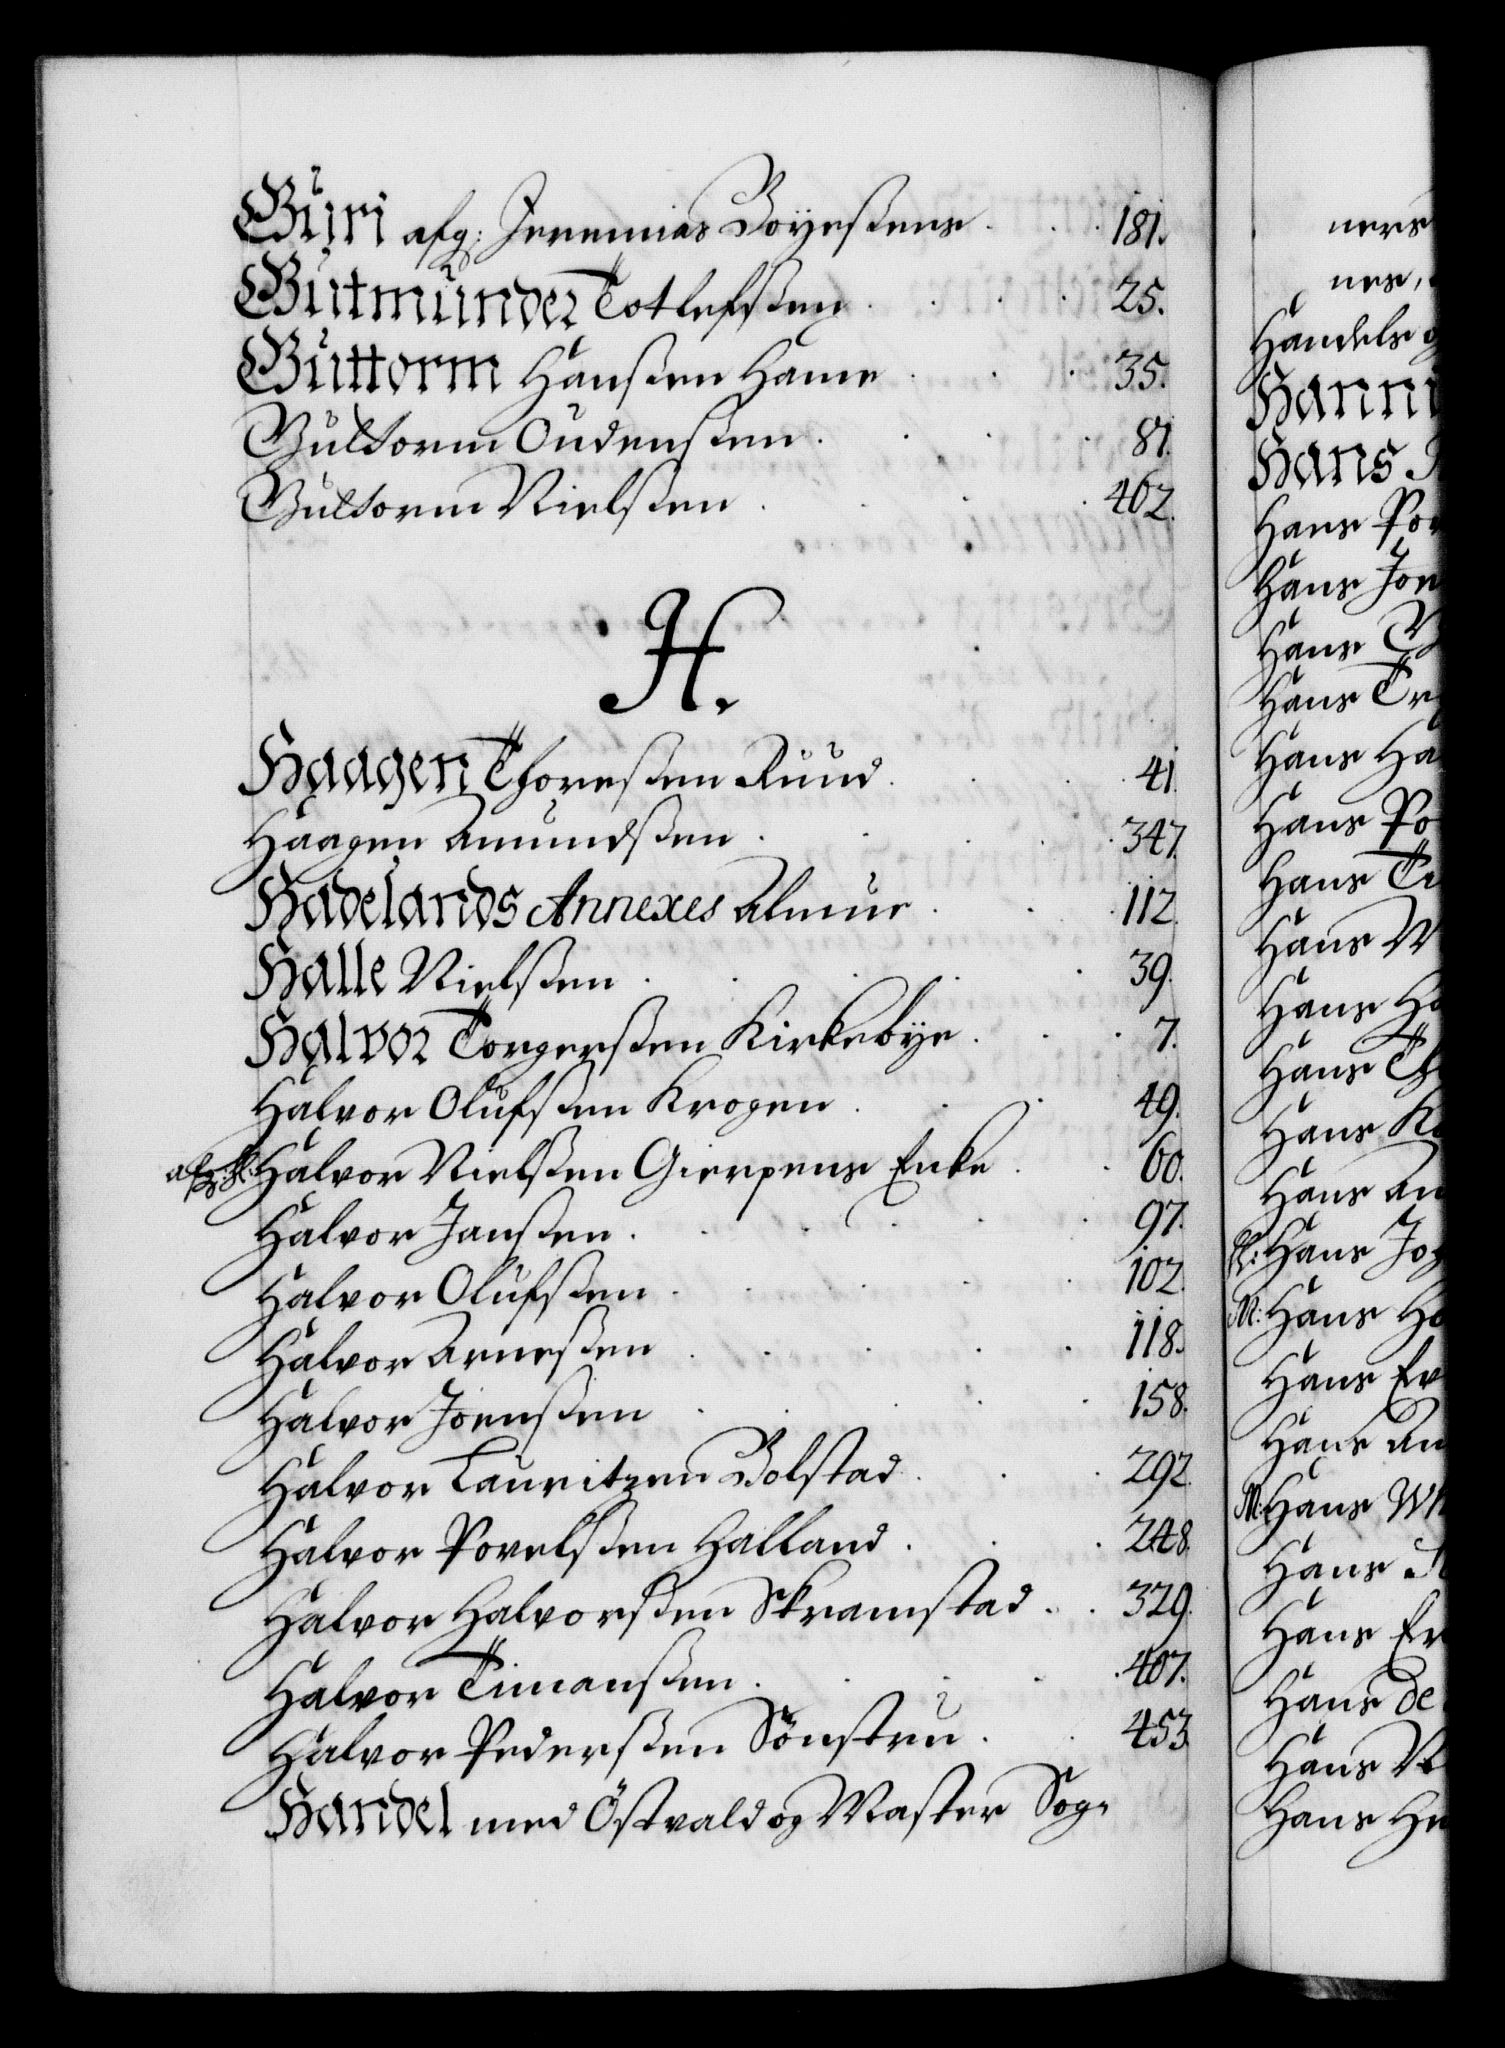 Guri afg: Jeremias Boyessens . . 181.
Gutmunder Totlefssen . . . 25.
Guttorm Hanssen Hame . . . 35.
Guttorm Oudenssen . . . . 81.
Guttorm Nielssen . . . . 402.
H.
Haagen Thoressen Ruud . . . 41.
Haagen Amundssen . . . . 347.
Hadelands Annexes Almue . . . 112.
Halle Nielssen . . . . 39.
Halvor Torgerssen Kirkebye . . . 7.
Halvor Olufssen Krogen . . . 49.
afg: sl: Halvor Nielssen Gierpens Enke . . 60.
Halvor Janssen . . . . 97.
Halvor Olufssen . . . . 102.
Halvor Arnessen . . . . 118.
Halvor Joenssen . . . . 158.
Halvor Lauritzen Bolstad . . . 292.
Halvor Povelssen Halland . . . 248.
Halvor Halvorssen Skramstad . . 329.
Halvor Timanssen . . . . 407.
Halvor Pederssen Sönstru . . 453.
Handel med Östvald og Master Sog-
ners
nes,
Handels
Hanni
Hans
Hans Pov
Hans Joe
Hans
Hans
Hans Ha
Hans Po
Hans
Hans
Hans Ha
Hans Th
Hans
Hans An
sl: Hans Jo
M: Hans
Hans
Hans An
M: Hans
Hans
Hans
Hans de
Hans
Hans